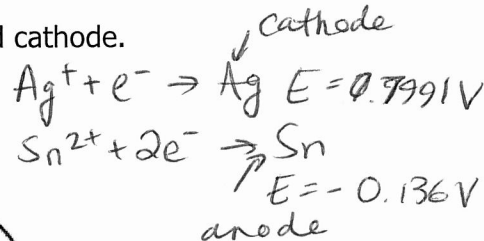 l cathode.
Cathode
Ag⁺ + e⁻ → Ag E = 0.7991 V
Sn²⁺ + 2e⁻ → Sn
E = - 0.136 V
anode